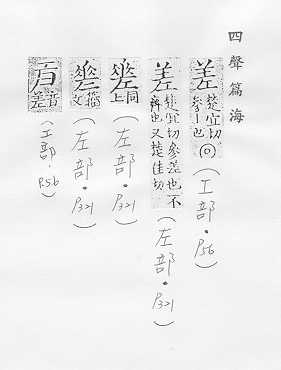 四聲篇海
差 楚宜切參丨也（工部·P56）
差 楚宜切參差也不齊也又楚佳切（左部·P321）
同上（左部·P321）
籀文（左部·P321）
音差（工部·P56）